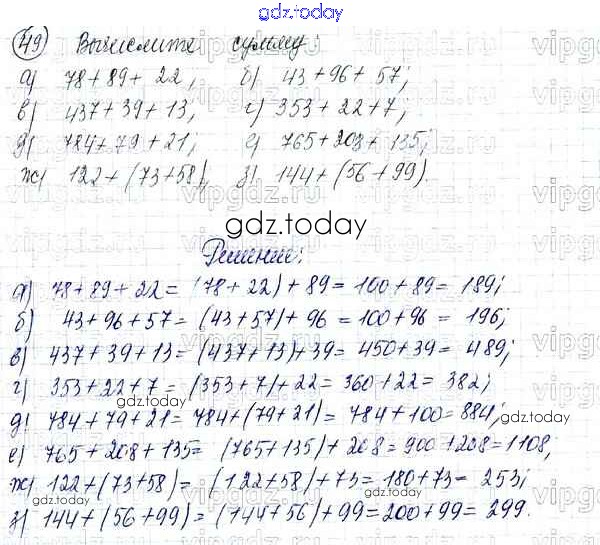 gdz.today
49 Вычислите сумму:
а) 78+89+22; б) 43+96+57;
в) 437+39+13; г) 353+22+7;
д) 784+79+21; е) 765+208+135;
ж) 122+(73+58); з) 144+(56+99).
gdz.today
Решение:
а) 78+89+22 = (78+22)+89 = 100+89 = 189;
б) 43+96+57 = (43+57)+96 = 100+96 = 196;
в) 437+39+13 = (437+13)+39 = 450+39 = 489;
г) 353+22+7 = (353+7)+22 = 360+22 = 382;
д) 784+79+21 = 784+(79+21) = 784+100 = 884;
gdz.today
е) 765+208+135 = (765+135)+208 = 900+208 = 1108;
ж) 122+(73+58) = (122+58)+73 = 180+73 = 253;
gdz.today
з) 144+(56+99) = (144+56)+99 = 200+99 = 299.